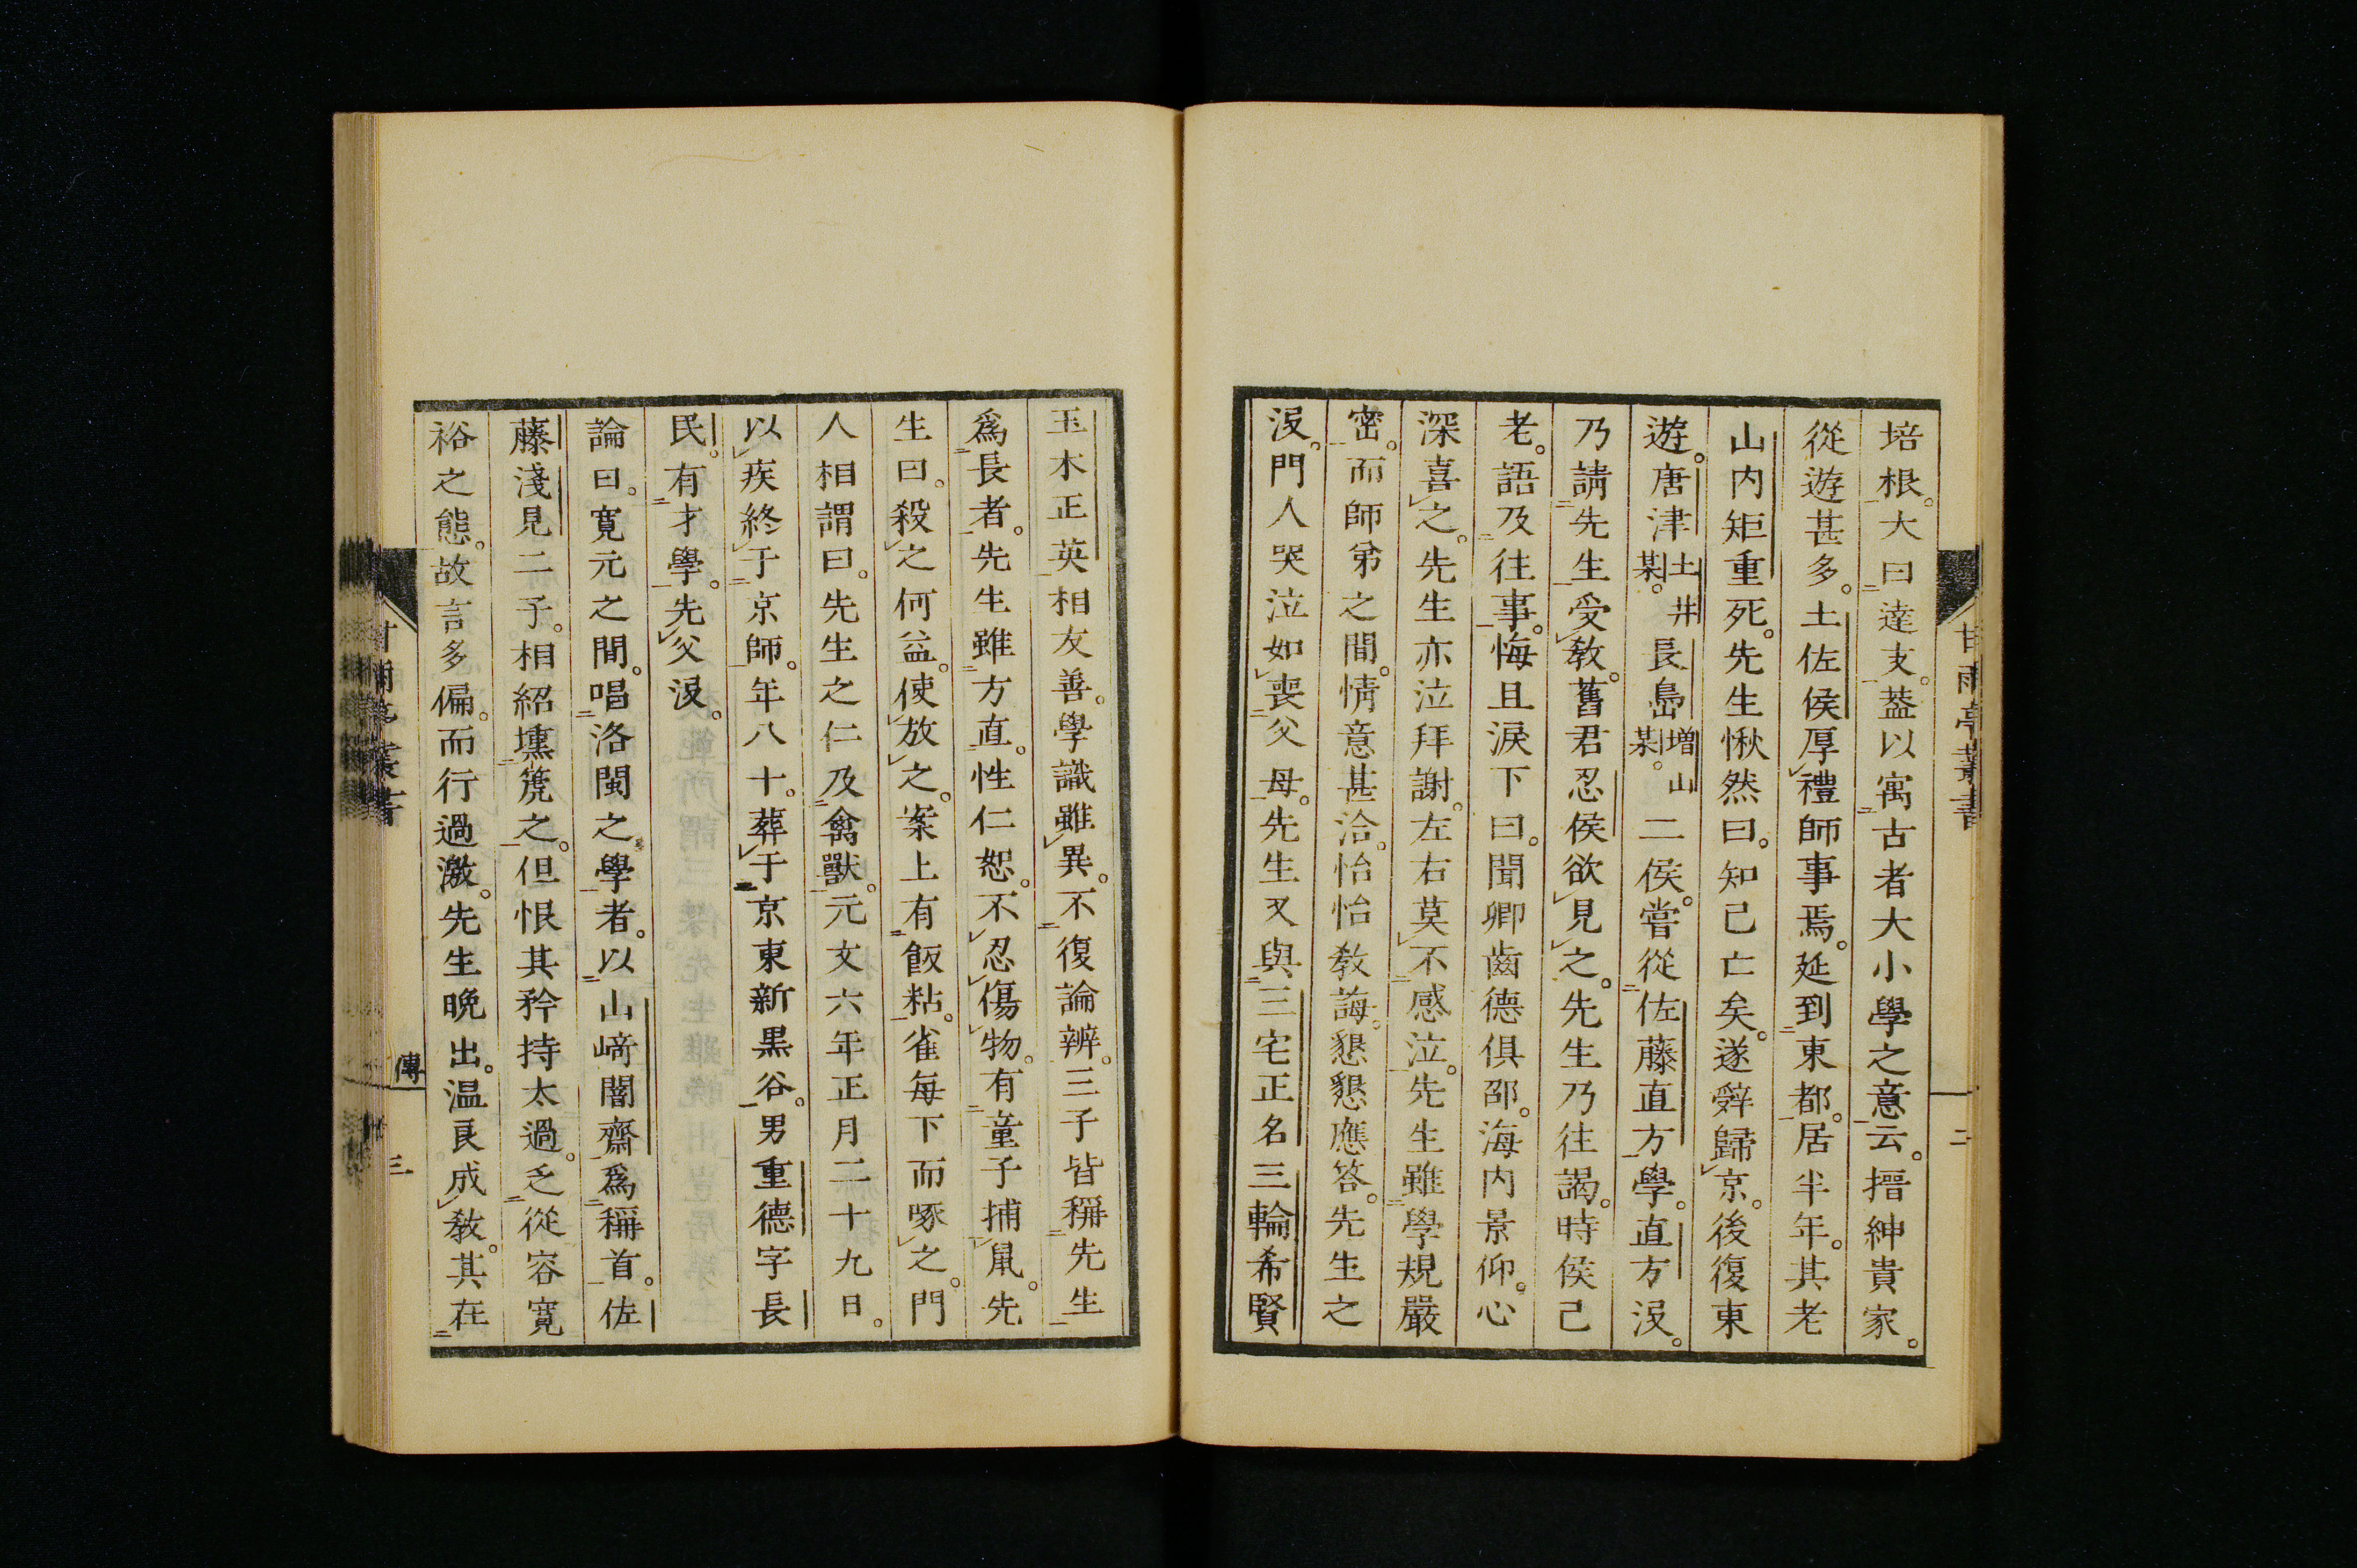 培根。大曰達支。葢以寓古者大小學之意云。搢紳貴家。
從遊甚多。土佐侯厚禮師事焉。延到東都。居半年。其老
山内矩重死。先生愀然曰。知己亡矣。遂辤歸京。後復東
遊。唐津土井某。長島増山某。二侯。嘗從佐藤直方學。直方沒。
乃請先生受敎。舊君忍侯欲見之。先生乃往謁。時侯己
老。語及往事。悔且淚下曰。聞卿齒德俱邵。海内景仰。心
深喜之。先生亦泣拜謝。左右莫不感泣。先生雖學規嚴
密。而師弟之間。情意甚洽。怡怡敎誨。懇懇應答。先生之
沒。門人哭泣如喪父母。先生又與三宅正名三輪希賢
玉木正英相友善。學識雖異。不復論辨。三子皆稱先生
爲長者。先生雖方直。性仁恕。不忍傷物。有童子捕鼠。先
生曰。殺之何益。使放之。案上有飯粘。雀每下而啄之。門
人相謂曰。先生之仁及禽獸。元文六年正月二十九日。
以疾終于京師。年八十。葬于京東新黒谷。男重德字長
民。有才學。先父沒。
論曰。寬元之間。唱洛閩之學者。以山﨑闇齋爲稱首。佐
藤淺見二子。相紹壎篪之。但恨其矜持太過。乏從容寬
裕之態。故言多偏。而行過激。先生晩出。温良成敎。其在
甘雨亭叢書
二
甘雨亭叢書
傳
三